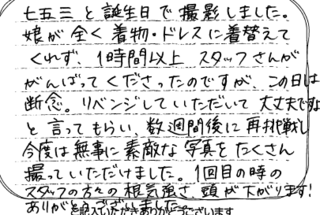 七五三と誕生日で撮影しました。
娘が全く着物・ドレスに着替えて
くれず、1時間以上 スタッフさんが
がんばってくださったのですが、この日は
断念。リベンジしていただいて大丈夫ですよ
と言ってもらい、数週間後に再挑戦し
今度は無事に素敵な写真をたくさん
撮っていただけました。1回目の時の
スタッフの方々の根気強さ、頭が下がります!
ありがとうございました。
ご記入いただきありがとうございます